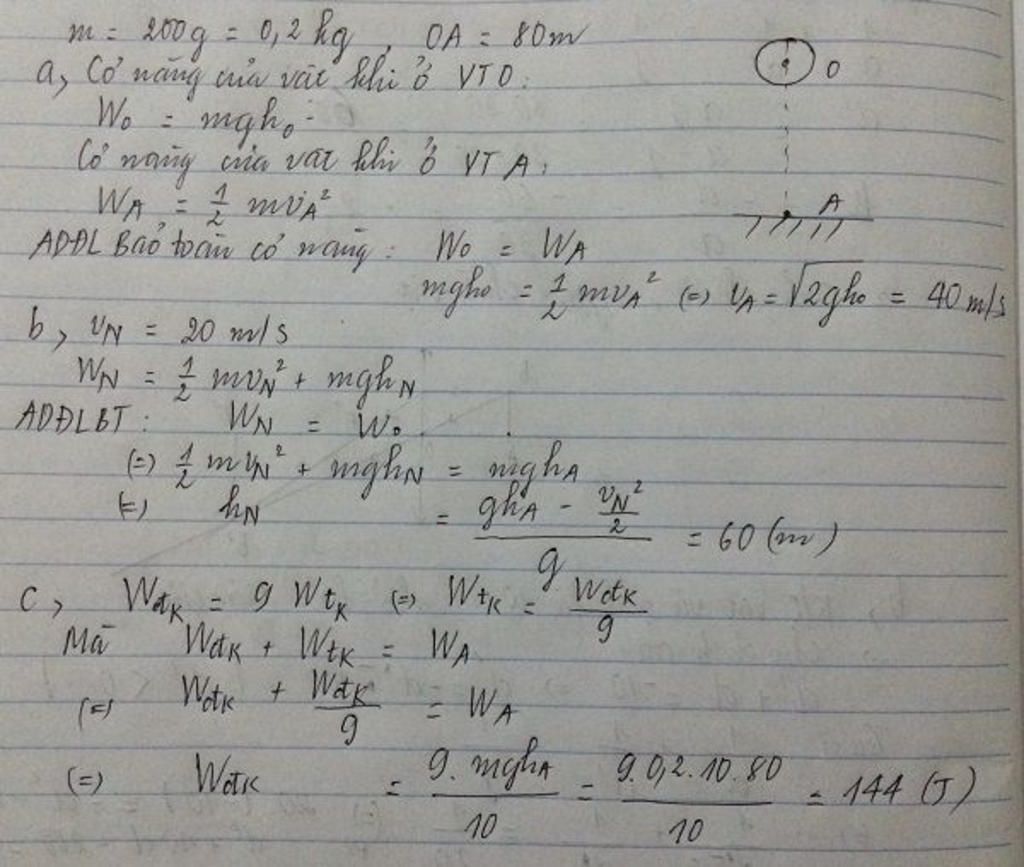 m = 200g = 0,2 kg , OA = 80m
a, Cơ năng của vật khi ở VT O:
O
W₀ = mgh₀
Cơ năng của vật khi ở VT A:
W_A = 1/2 mv_A²
A
ADĐL Bảo toàn cơ năng: W₀ = W_A
mgh₀ = 1/2 mv_A² (=) v_A = √2gh₀ = 40 m/s
b, v_N = 20 m/s
W_N = 1/2 mv_N² + mgh_N
ADĐLBT: W_N = W₀
(=) 1/2 mv_N² + mgh_N = mgh_A
(=) h_N = (gh_A - v_N²/2)/g = 60 (m)
c, Wđ_K = 9 Wt_K (=) Wt_K = Wđ_K/9
Mà Wđ_K + Wt_K = W_A
(=) Wđ_K + Wđ_K/9 = W_A
(=) Wđ_K = 9.mgh_A/10 = 9.0,2.10.80/10 = 144 (J)